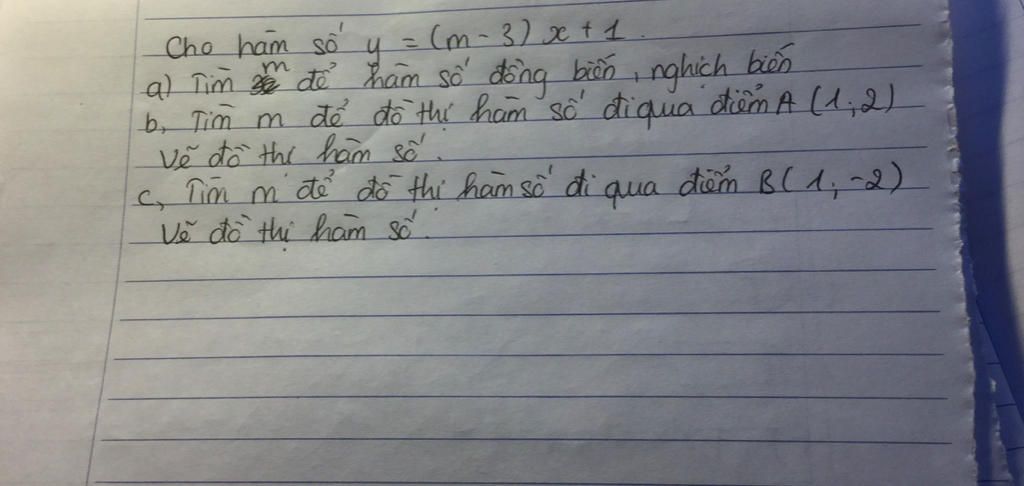 Cho hàm số y = (m - 3) x + 1.
a) Tìm m để hàm số đồng biến, nghịch biến
b, Tìm m để đồ thị hàm số đi qua điểm A (1; 2)
Vẽ đồ thị hàm số.
c, Tìm m để đồ thị hàm số đi qua điểm B (1; -2)
Vẽ đồ thị hàm số.